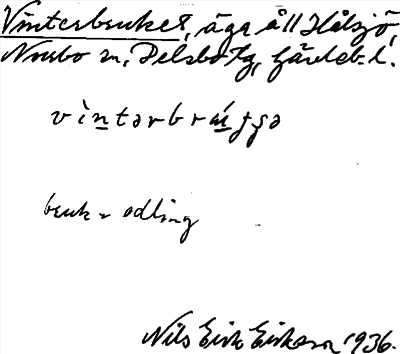 Vinterbruket, äga å ll Hålsjö,
Norrbo sn, Delsbo tg, Gävleb. l.
vìntərbrúʒʒə
bruk = odling
Nils Eric Erikson 1936.